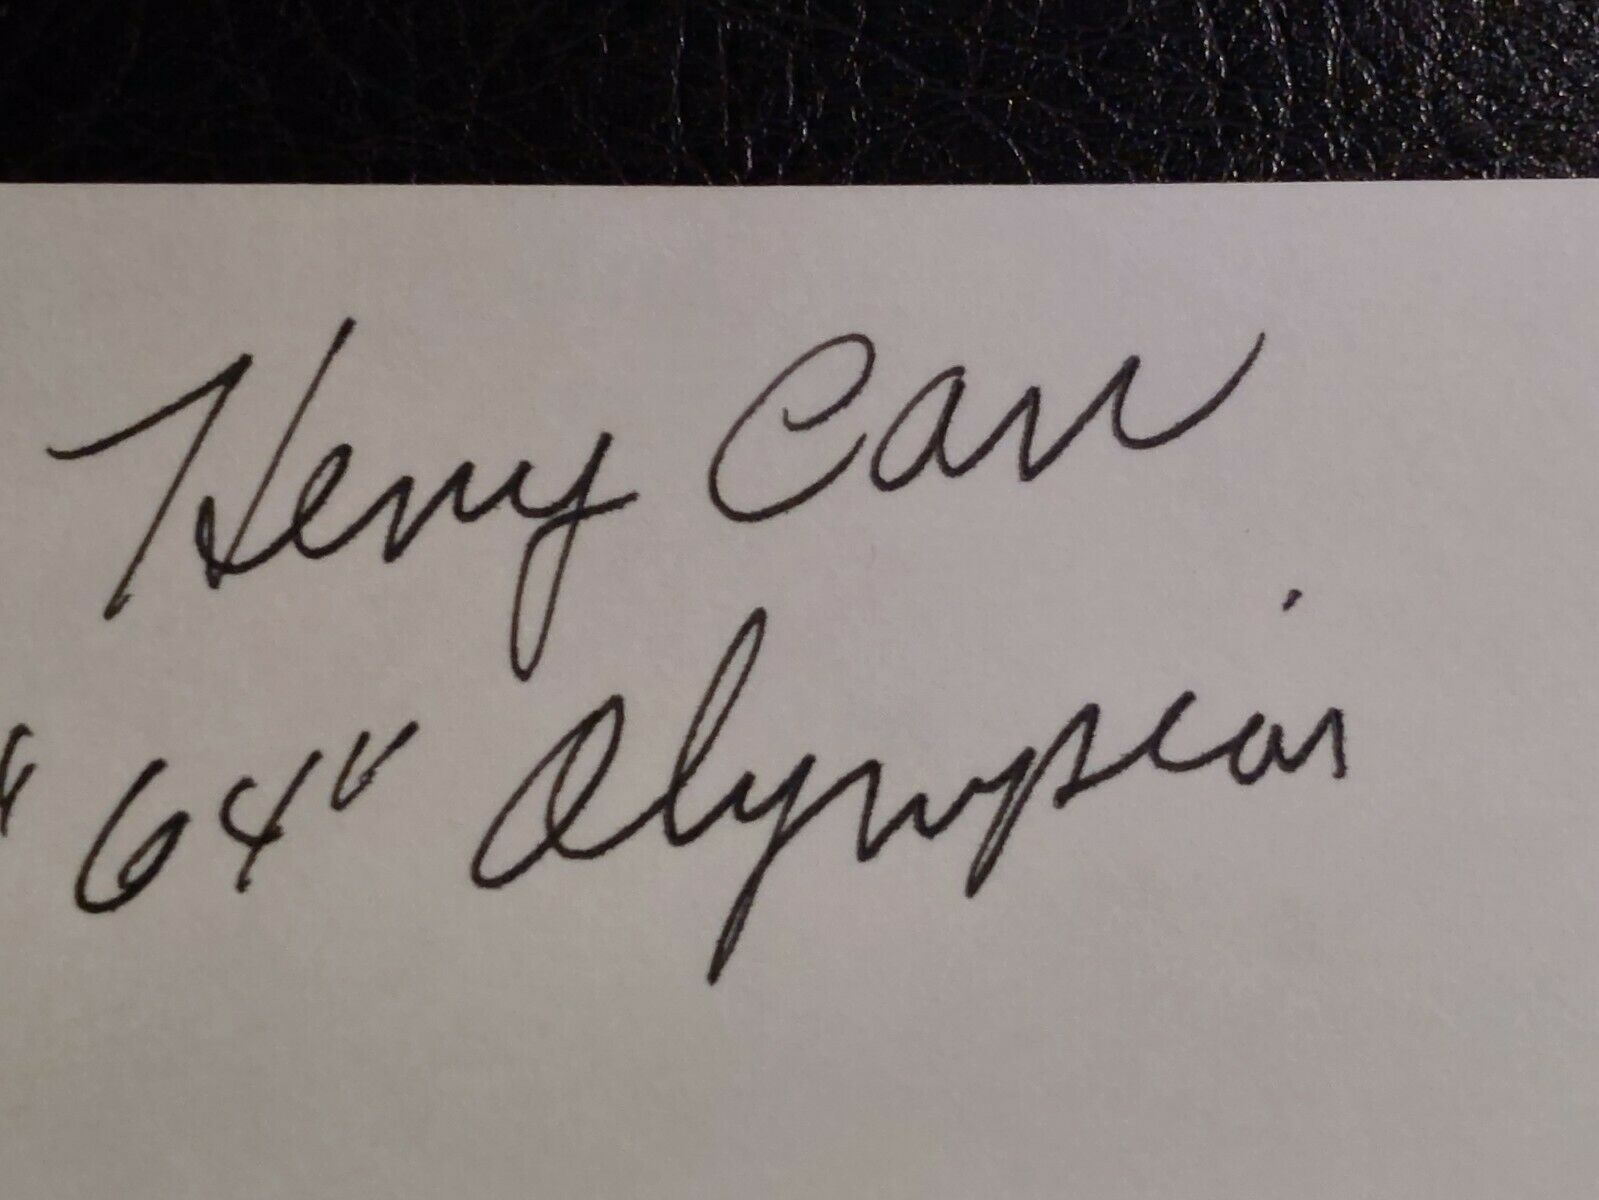 Henry Carr
"64" Olympian